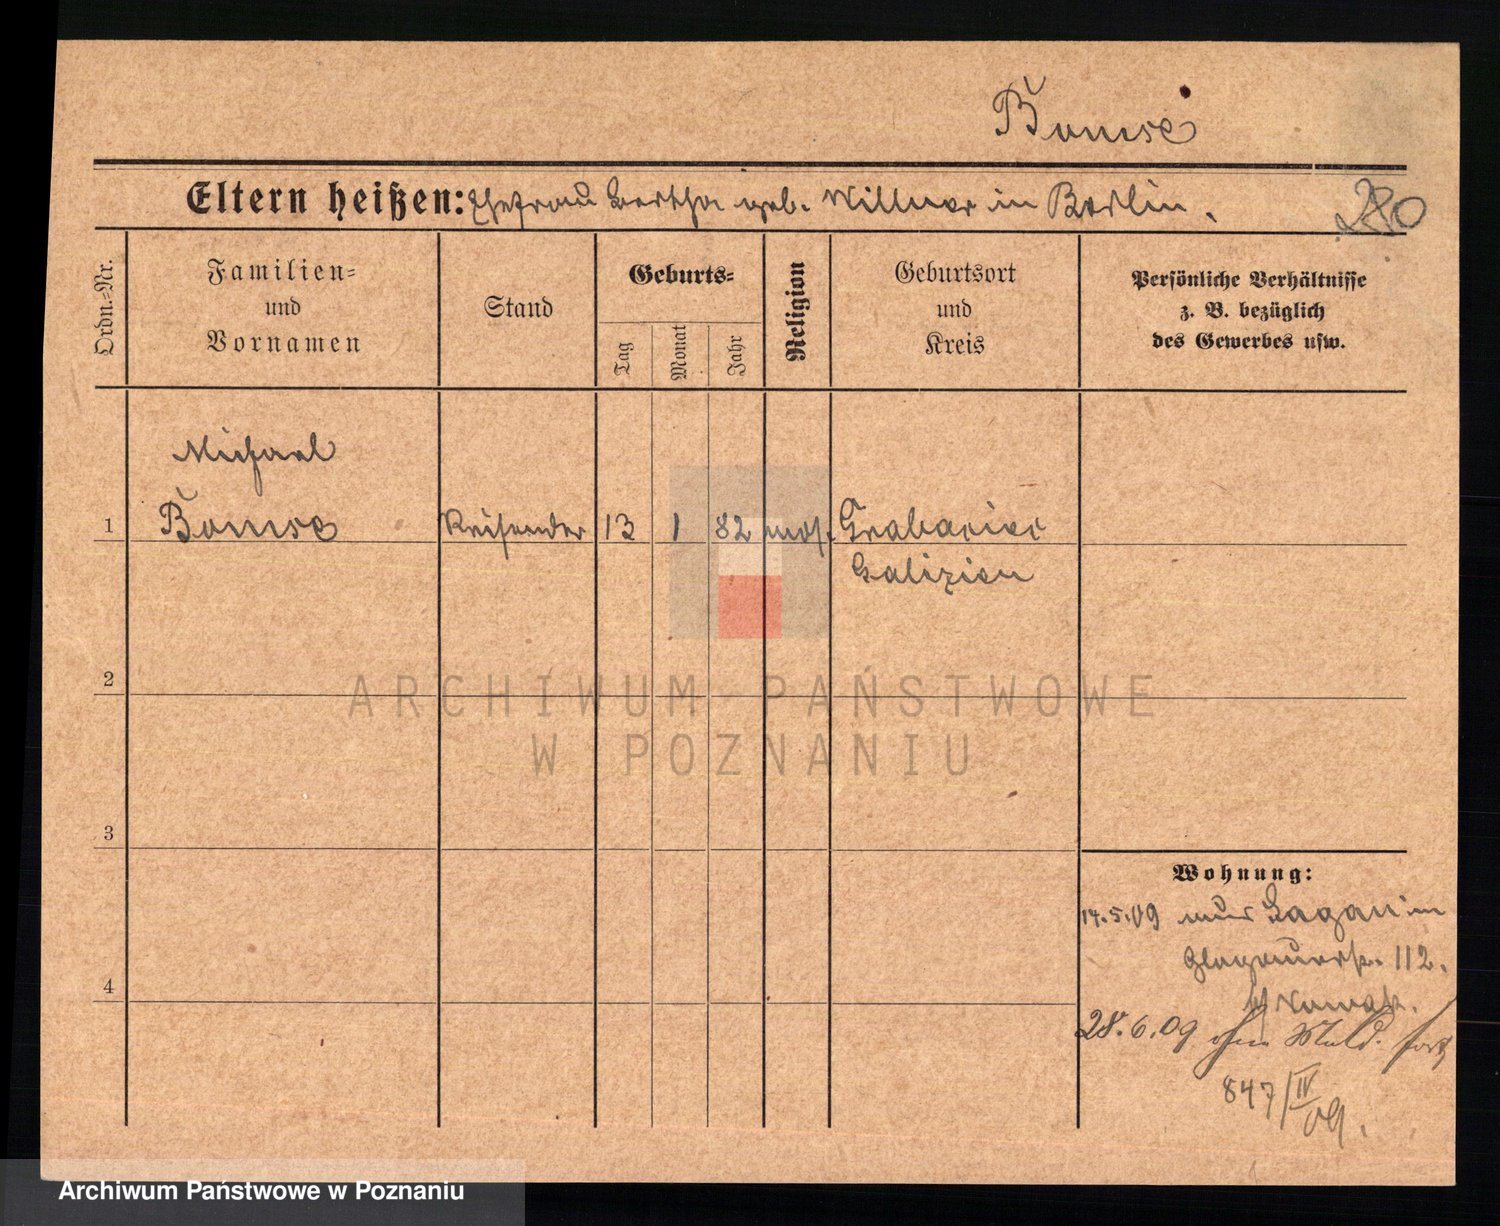 Bomse
Eltern heißen: Ehefrau Bertha geb. Willner in Berlin.
280
Ordn.=Nr.
Familien=
und
Vornamen
Stand
Geburts=
Tag
Monat
Jahr
Religion
Geburtsort
und
Kreis
Persönliche Verhältnisse
z. B. bezüglich
des Gewerbes usw.
Michael
1 Bomse Reisender 13 1 82 mos.
Galizien
2
ARCHIWUM PAŃSTWOWE
W POZNANIU
3
4
Wohnung:
14.5.09 Sagan
112.
28.6.09 ohne Meld. fort
847/IV
09.
Archiwum Państwowe w Poznaniu